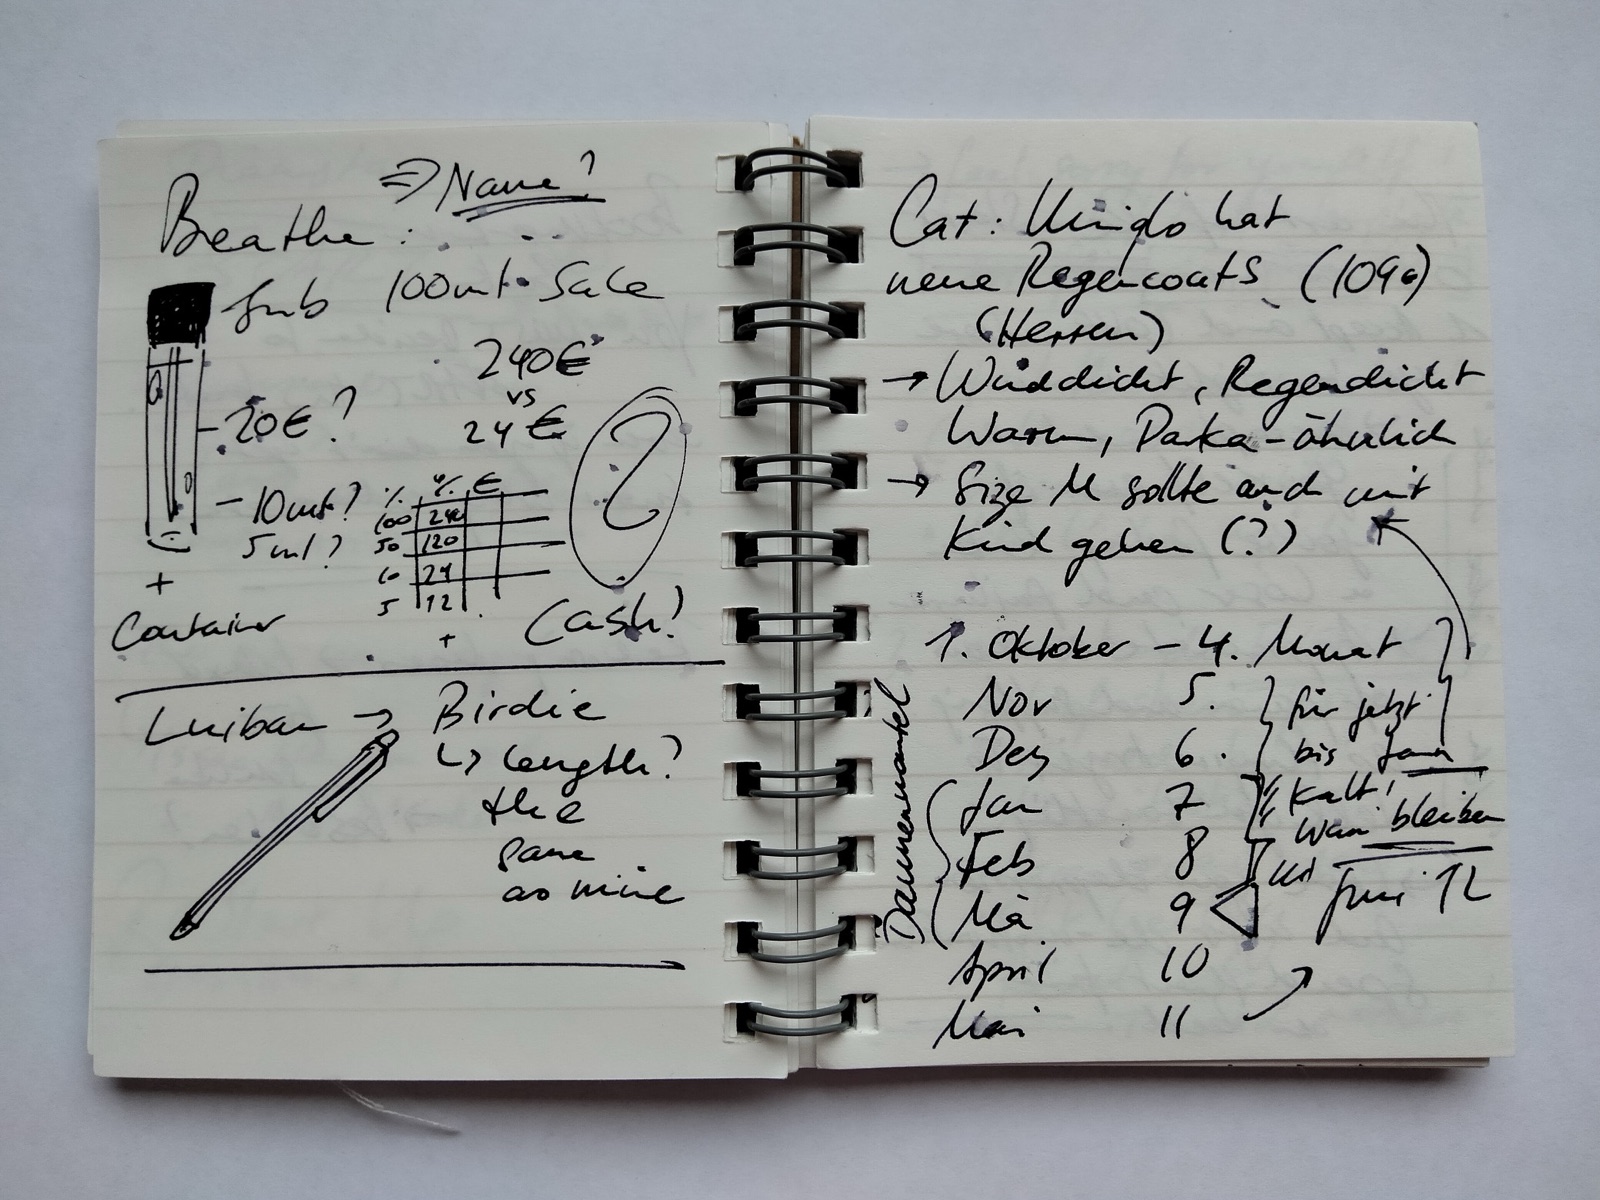 ⇒ Name?
Beathe:
100ml Sale
240€
vs
24€
- 20€?
- 10ml?
5ml?
% % €
100 240
50 120
10 24
5 12
+
Container
+
Cash?
→ Birdie
↳ length?
the
same
as mine
Cat: Uniqlo hat
neue Regencoats (109€)
(Herren)
→ Winddicht, Regendicht
Warm, Parka-ähnlich
→ Size M sollte auch mit
Kind gehen (?)
1. Oktober – 4. Monat
Nov 5.
Dez 6.
Jan 7
Feb 8
Mä 9
April 10
Mai 11
für jetzt
bis Jan
Kalt!
Warm bleiben
Juni 12
Daunenmantel